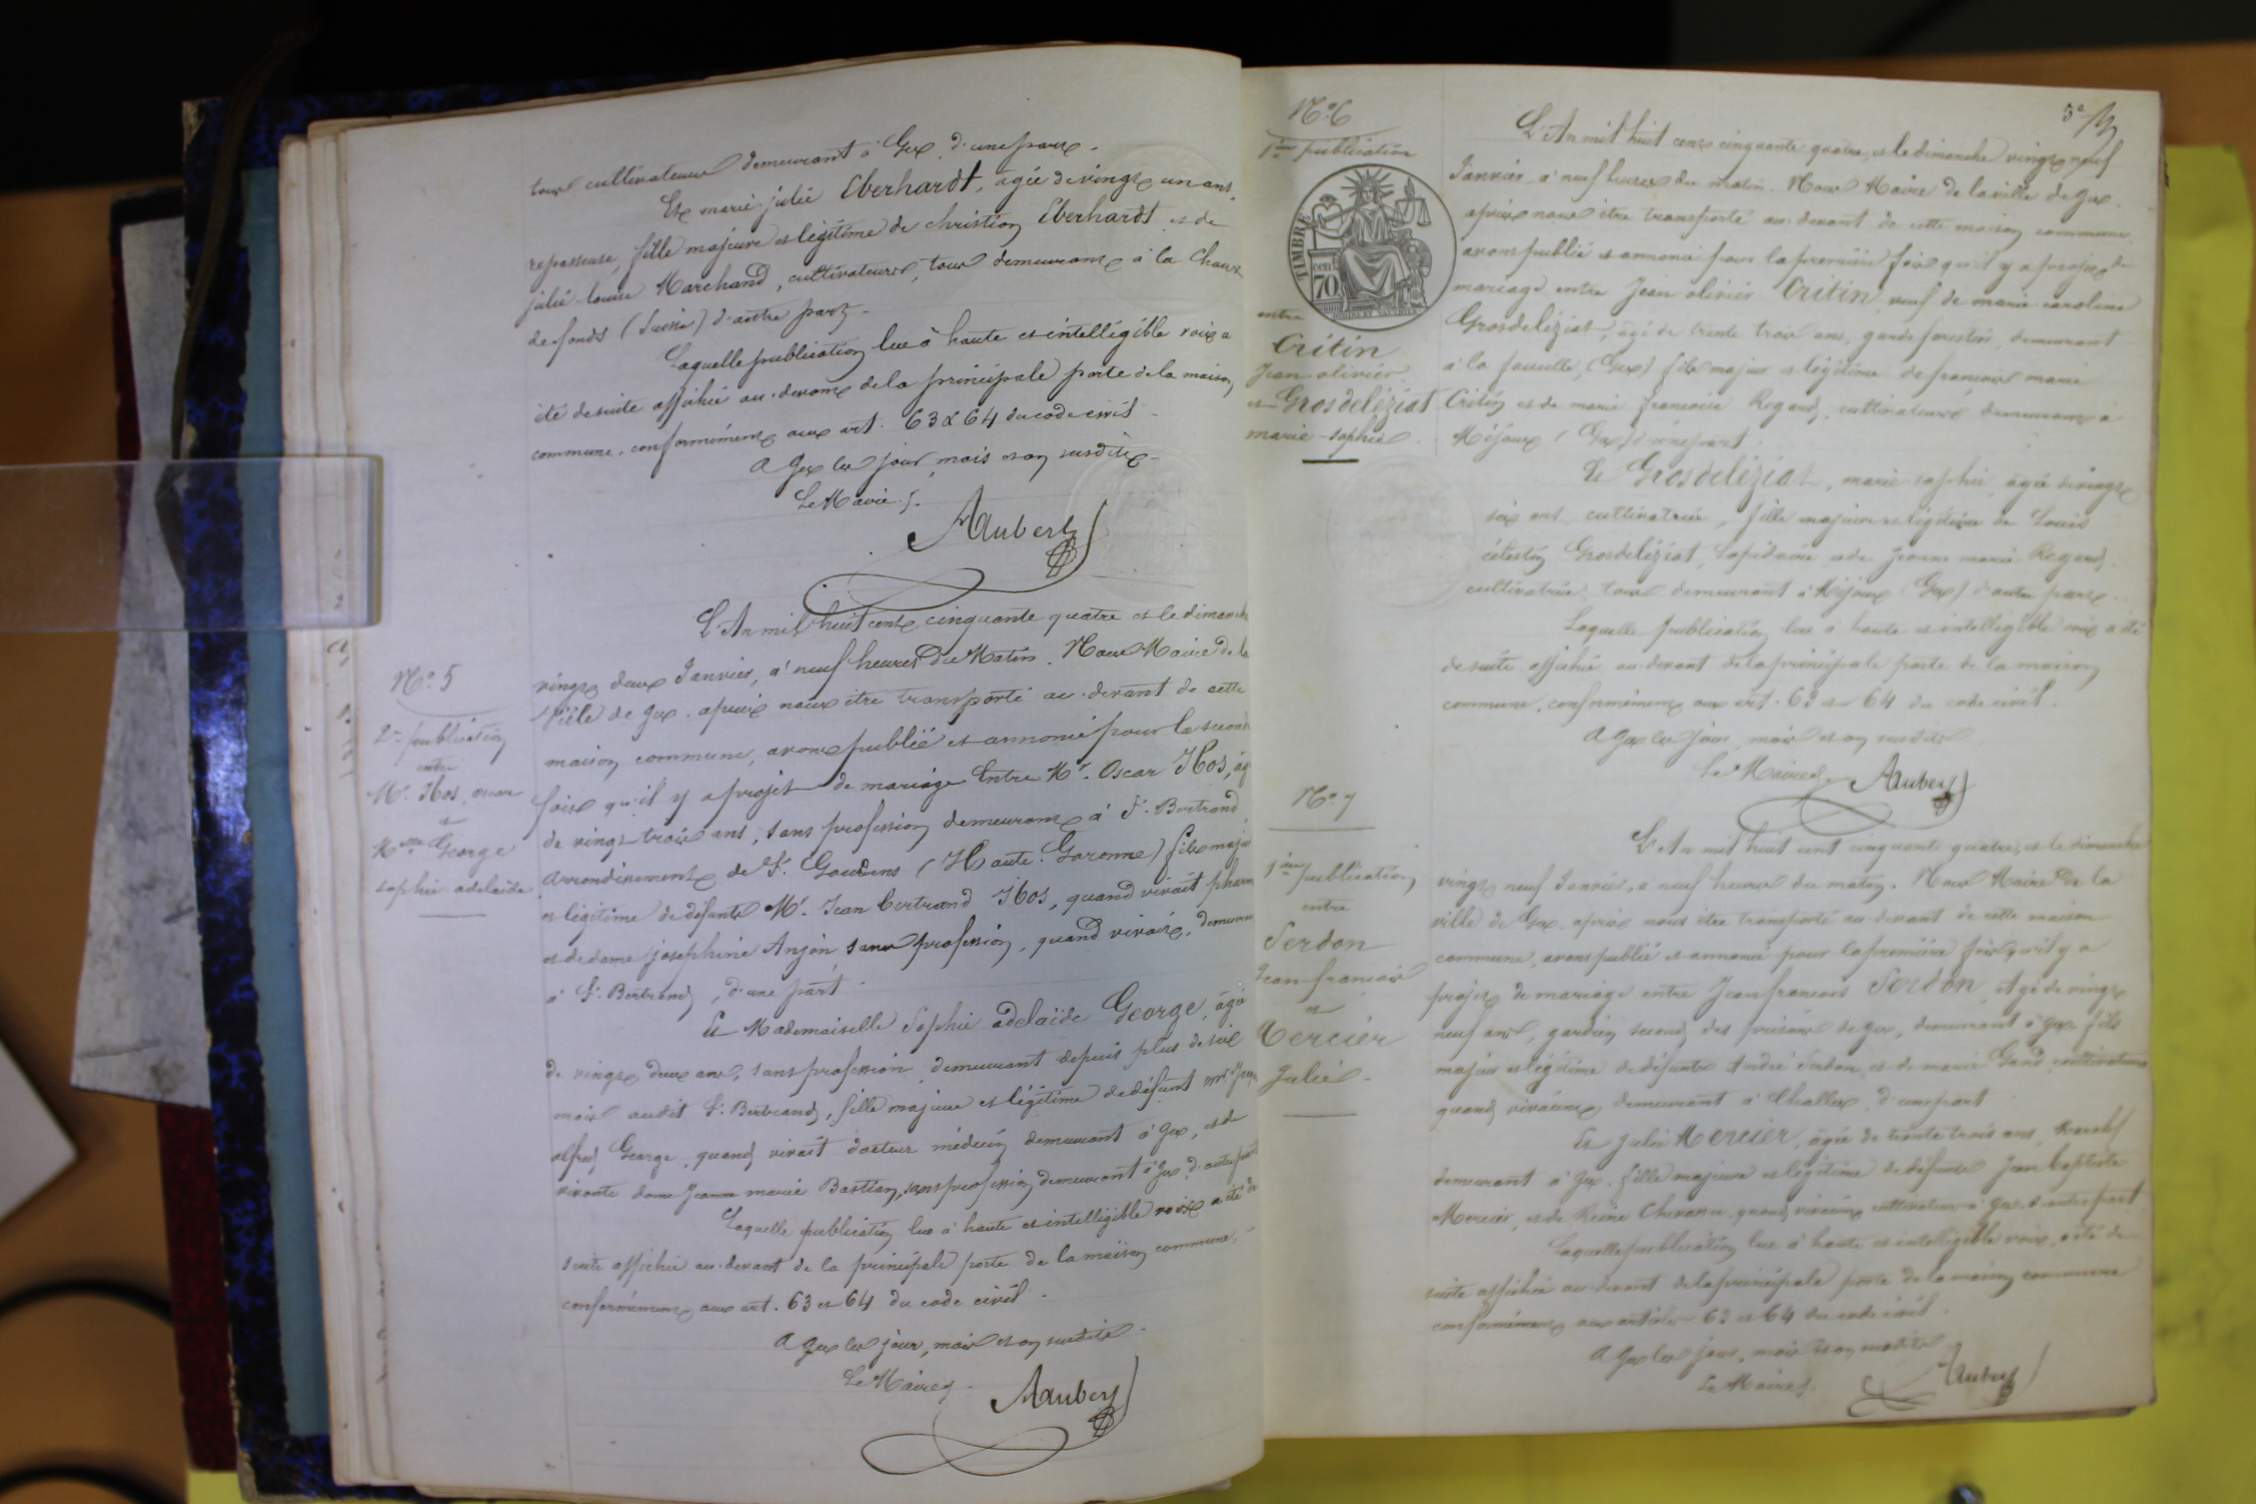 tous cultivateurs demeurant à Gex, d'une part.
Et marie julie Eberhardt, âgée de vingt un ans,
repasseuse, fille majeure et légitime de christian Eberhardt et de
julie louise Marchand, cultivateurs, tous demeurant à la Chaux
de fonds (Suisse) d'autre part.
Laquelle publication lue à haute et intelligible voix a
été de suite affichée au-devant de la principale porte de la maison
commune, conformément aux art. 63 & 64 du code civil.
A Gex les jour, mois et an susdits.
Le Maire
Aubert
N° 5
2me publication
entre
Mr. Ibos, oscar
et
Melle George
sophie adelaïde
L'An mil huit cent cinquante quatre et le dimanche
vingt deux Janvier, à neuf heures du Matin. Nous Maire de la
Ville de Gex, après nous être transporté au-devant de cette
maison commune, avons publié et annoncé pour la seconde
fois qu'il y a projet de mariage Entre Mr. Oscar Ibos, âgé
de vingt trois ans, sans profession demeurant à St. Bertrand
arrondissement de St. Gaudens (Haute Garonne) fils majeur
et légitime de défunts Mr. Jean bertrand Ibos, quand vivait pharm
et de dame joséphine Anjon sans profession, quand vivait, demeurant
à St. Bertrand, d'une part.
Et Mademoiselle Sophie adelaïde George, âgée
de vingt deux ans, sans profession, demeurant depuis plus de six
mois audit St. Bertrand, fille majeure et légitime de défunt mr. Jean
alfred George, quand vivait docteur médecin demeurant à Gex, et de
vivante dame Jeanne marie Bastian, sans profession demeurant à Gex d'autre part
Laquelle publication lue à haute et intelligible voix a été de
suite affichée au-devant de la principale porte de la maison commune,
conformément aux art. 63 et 64 du code civil.
A Gex les jour, mois et an susdits.
Le Maire
Aubert
N° 6
1ère publication
TIMBRE
cen
70
entre
Critin
Jean olivier
et Grosdeléziat
marie-sophie.
L'An mil huit cent cinquante quatre, et le dimanche vingt neuf
Janvier à neuf heures du matin. Nous Maire de la ville de Gex.
après nous être transporté au-devant de cette maison commune
avons publié et annoncé pour la première fois qu'il y a projet de
mariage entre Jean olivier Critin veuf de marie caroline
Grosdeléziat, âgé de trente trois ans, garde forestier, demeurant
à la faucille, (Gex) fils majeur et légitime de francois marie
Critin et de marie francoise Regard, cultivateurs demeurant à
Mijoux (Gex) d'une part.
Et Grosdeléziat, marie sophie, âgée de vingt
six ans cultivatrice, fille majeure et légitime de Louis
célestin Grosdeléziat, lapidaire et de Jeanne marie Regard,
cultivatrice, tous demeurant à Mijoux (Gex) d'autre part.
Laquelle publication lue à haute et intelligible voix a été
de suite affichée au-devant de la principale porte de la maison
commune, conformément aux art. 63 et 64 du code civil.
A Gex les jour, mois et an susdits
Le Maire
Aubert
N° 7
1ère publication
entre
Serdon
Jean francois
et
Mercier
Julie.
L'An mil huit cent cinquante quatre, et le dimanche
vingt neuf Janvier, à neuf heures du matin. Nous Maire de la
ville de Gex, après nous être transporté au-devant de cette maison
commune, avons publié et annoncé pour la première fois qu'il y a
projet de mariage entre Jean francois Serdon, Agé de vingt
neuf ans, gardien second des prisons de Gex, demeurant à Gex fils
majeur et légitime de défunts André Serdon, et de marie Gand cultivateurs
quand vivaient, demeurant à Challex, d'une part
Et Julie Mercier, âgée de trente trois ans,
demeurant à Gex, fille majeure et légitime de défunts Jean baptiste
Mercier, et de Reine quand vivaient cultivateurs à Gex d'autre part
Laquelle publication lue à haute et intelligible voix, a été de
suite affichée au-devant de la principale porte de la maison commune
conformément aux articles 63 et 64 du code civil.
A Gex les jour, mois et an susdits
Le Maire
Aubert